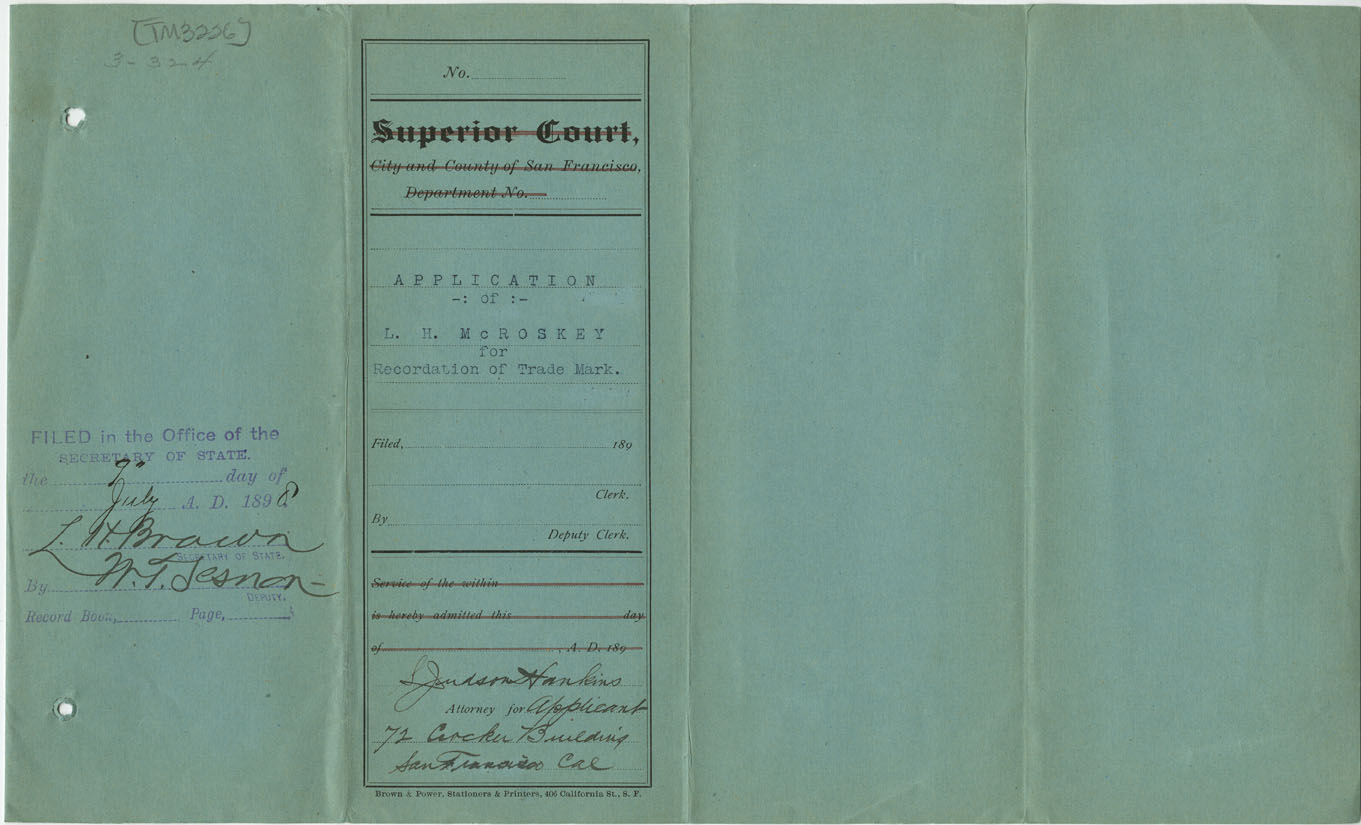 [TM3226]
3-324
FILED in the Office of the
SECRETARY OF STATE.
the 7" day of
July A. D. 1898
L. H. Brown
SECRETARY OF STATE.
By W. T.
DEPUTY.
Record Book, Page,
No.
Superior Court,
City and County of San Francisco,
Department No.
APPLICATION
-: of :-
L. H. McROSKEY
for
Recordation of Trade Mark.
Filed, 189
Clerk.
By
Deputy Clerk.
Service of the within
is hereby admitted this day
of , A. D. 189
Judson Hankins
Attorney for Applicant
72 Crocker Building
San Francisco Cal
Brown & Power, Stationers & Printers, 406 California St., S. F.